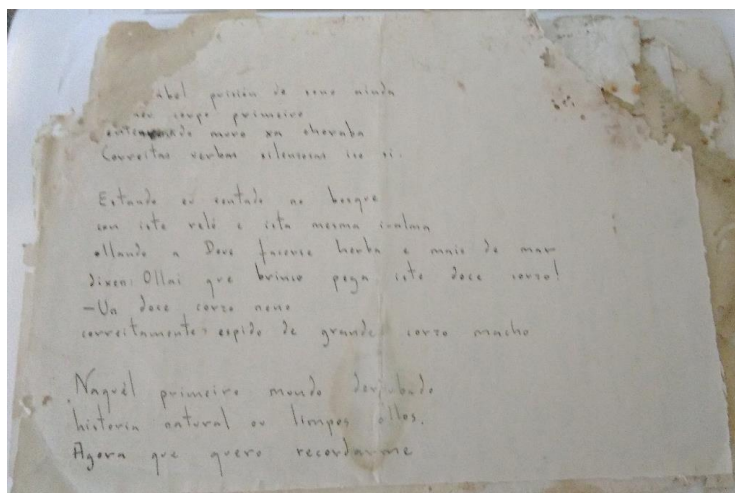 prisión de seno ainda
meu corpo primeiro
moro xa choraba
Correitas verbas silenzosas iso si.
Estando eu sentado no bosque
con iste reló e ista mesma
ollando a Deus facerse herba e mais do mar
dixen: Ollai que brinco pega iste doce corzo!
—Un doce corzo neno
correitamente espido de grande corzo macho
Naquel primeiro mundo derrubado
historia natural ou limpos ollos.
Agora que quero recordarme